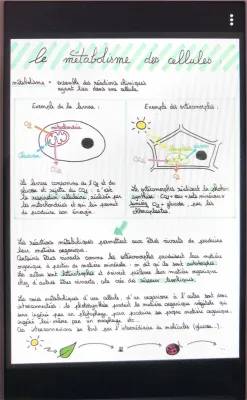 Le métabolisme des cellules
métabolisme = ensemble des réactions chimiques
ayant lieu dans une cellule.
Exemple de la levure :
Exemple des
mitochondrie
O2
CO2
La levure consomme de l'O2 et du
glucose et rejette du CO2 : c'est
la respiration cellulaire, réalisée par
les mitochondries et qui lui permet
de produire son énergie.
réalisent la photo-
synthèse : CO2 + eau + sels minéraux +
lumière → O2 + glucose, par les
chloroplastes.
Les réactions métaboliques permettent aux êtres vivants de produire
leur matière organique.
Certains êtres vivants comme les produisent leur matière
organique à partir de matière minérale : on dit qu'ils sont autotrophes.
Les autres sont hétérotrophes et doivent prélever leur matière organique
chez d'autres êtres vivants, cela crée des réseaux trophiques.
Les voies métaboliques d'une cellule, d'un organisme à l'autre sont donc
interconnectées : la photosynthèse produit la matière organique végétale qui
sera ingérée par un phytophage, pour produire sa propre matière organique,
ingérée lui-même par un zoophage, etc...
Ces interconnexions se font par l'intermédiaire de molécules (glucose...).